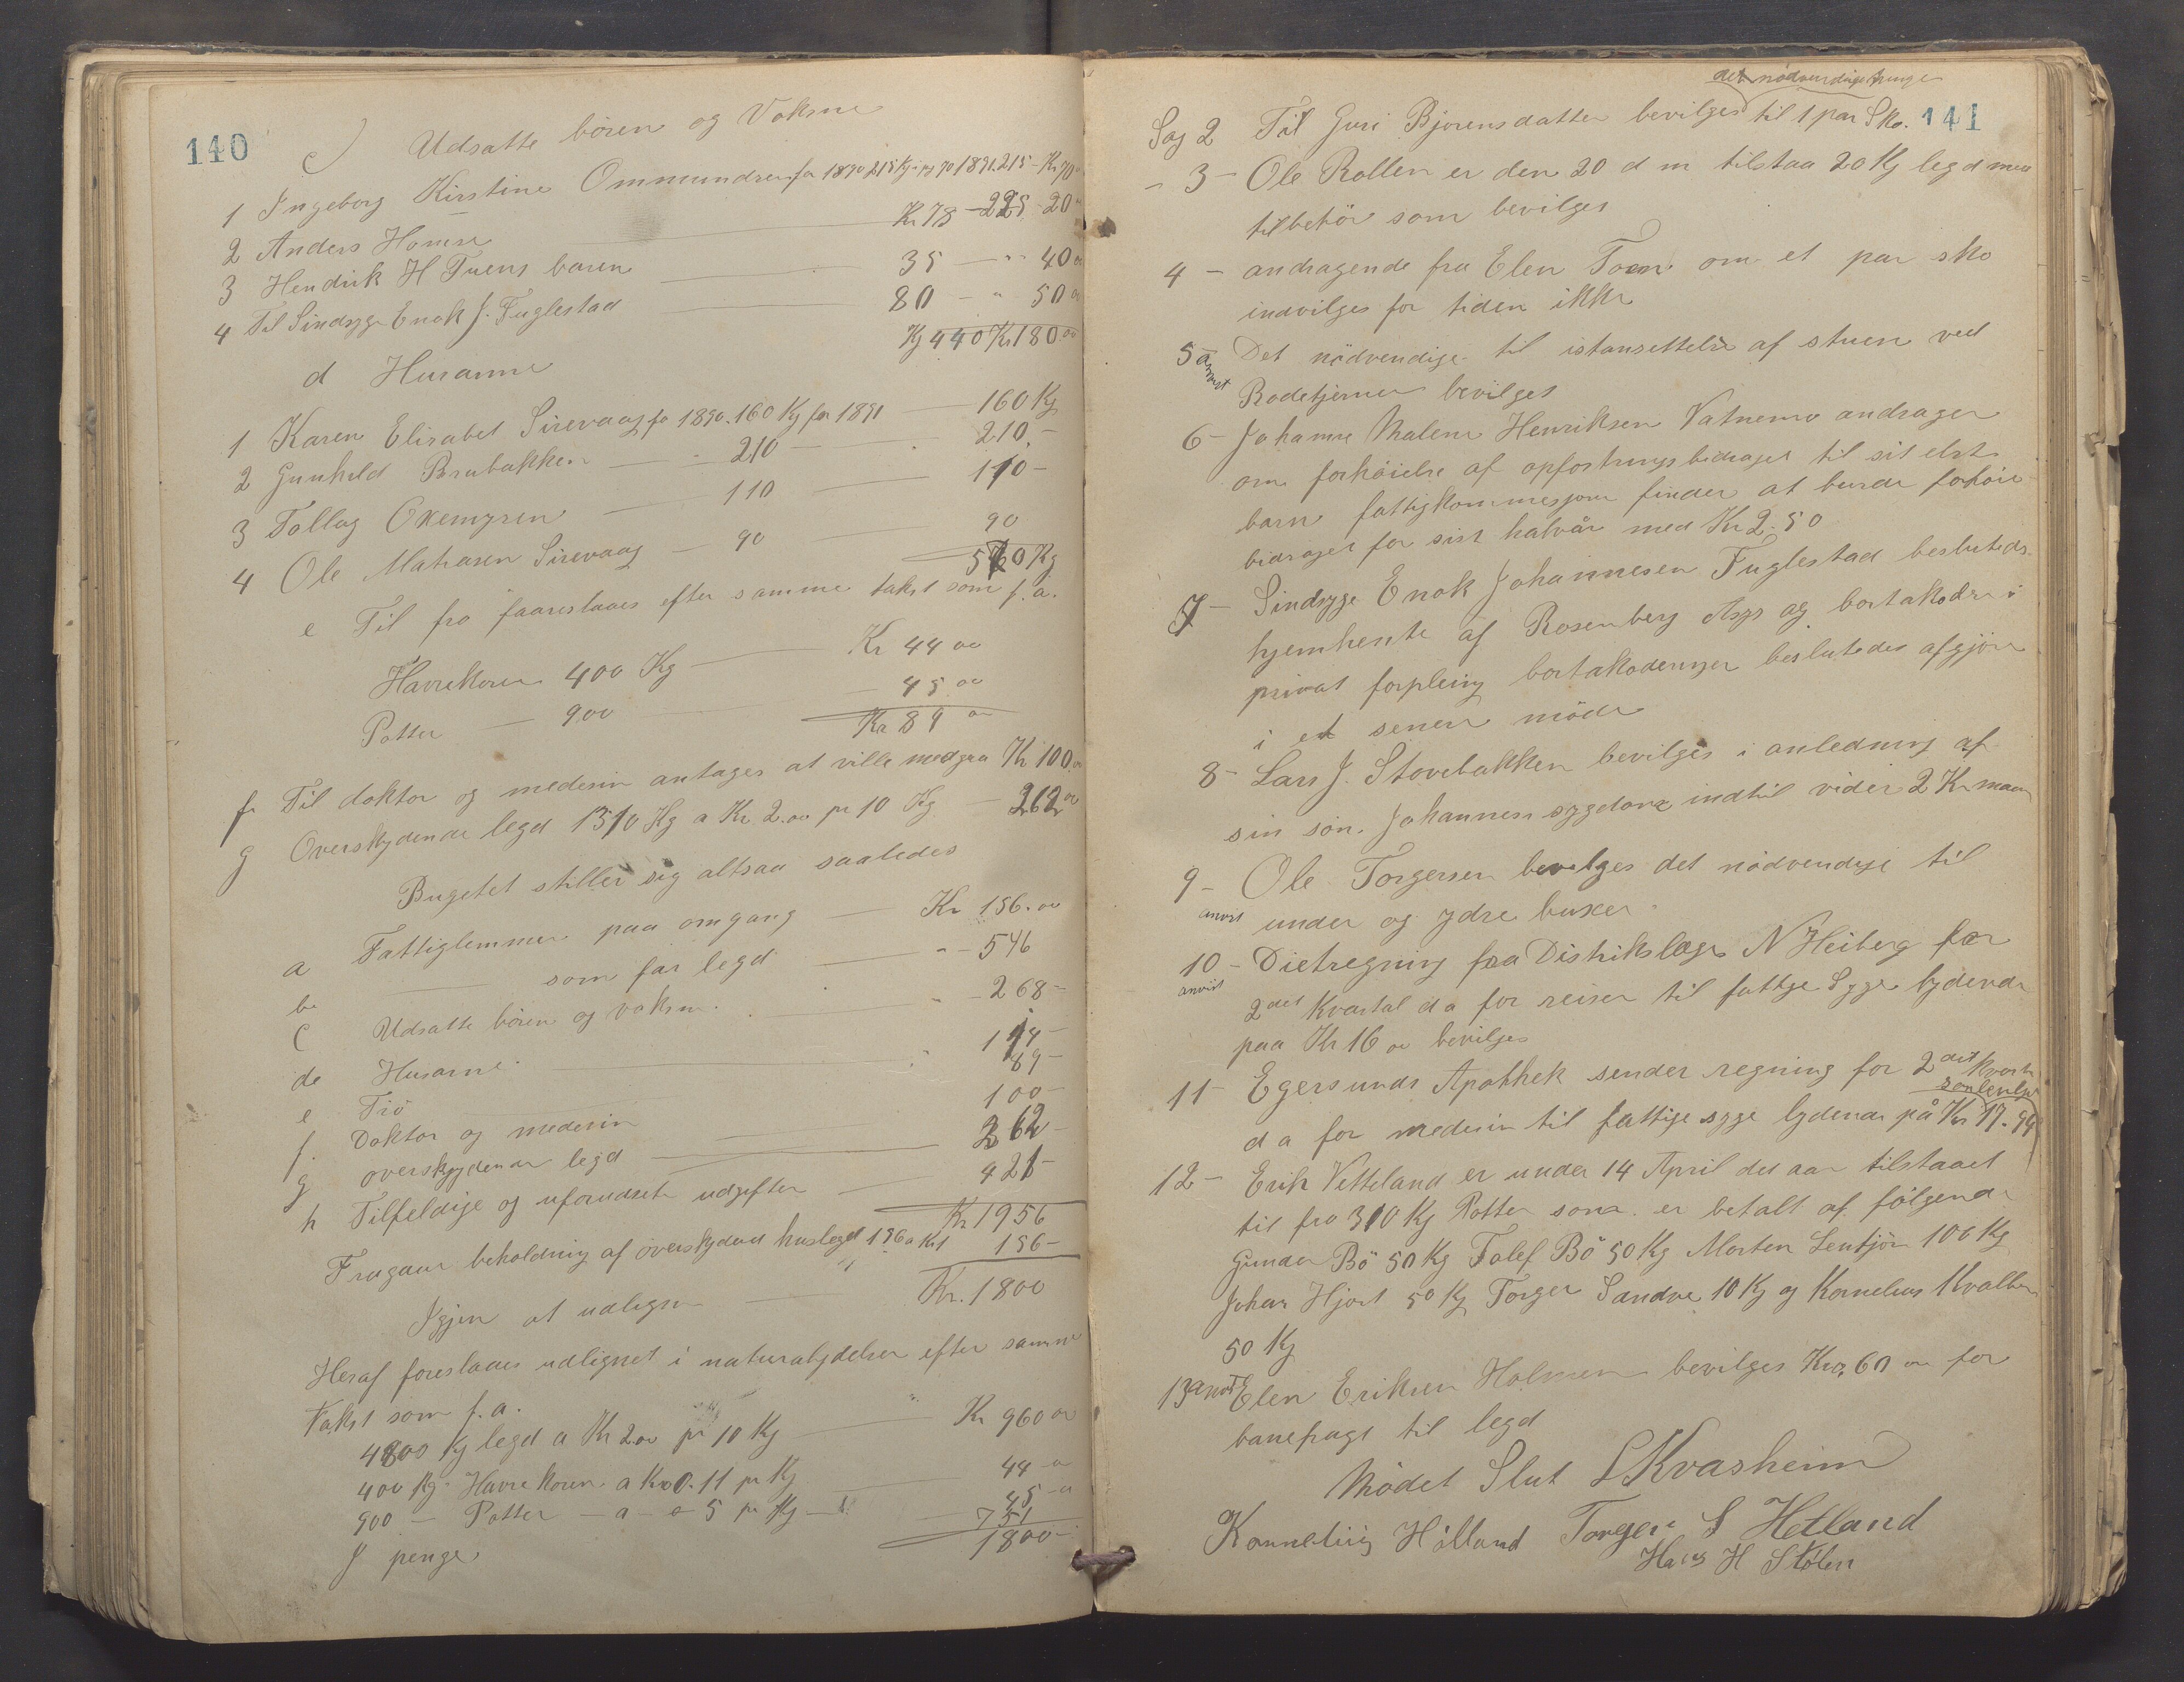 140
c) Udsatte börn og Voksne
1 Ingeborg Kirstine Ommundsen for 1890 215 Kg og 70 1891. 215 - Kr 70
2 Anders Homse Kr 78 - 225 - 20
3 Hendrik H Tuens baren 35 - " 40 00
4 Til Sindsyge Enok J. Fuglestad 80 - " 50 00
Kg 440 Kr 180 00
d Husarme
1 Karen Elisabet Sirevaag for 1890. 160 Kg for 1891 160 Kg
2 Gunhild Brubakken - 210 - 210 -
3 Tollag Oxemyren - 110 110 -
4 Ole Mathasen Sirevaag - 90 90
570 Kg
e Til frö faareslaaes efter samme takst som f. a.
Havrekoren 400 Kg Kr 44 00
Potter - 900 - 45 00
Kr 89 00
f Til doktor og medesin antages at ville medgaa Kr 100.00
g Overskydende legd 1310 Kg a Kr 2.00 pr 10 Kg - 262 00
Bugetet stiller sig altsaa saaledes
a Fattiglemmer paa omgang Kr 156.00
b som får legd " - 546
c Udsatte börn og voksne " - 268 -
d Husarme 114 -
e Frö " 89 -
f. Doktor og medesin 100 -
g overskydende legd 262 -
h Tilfeldige og uforudsete udgifter 421 -
Kr 1956
Fragaar beholdning af overskydend huslegd 156 a Kr 1 156 -
Igjen at udligne Kr. 1800
Heraf foreslaaes udlignet i naturalydelser efter samme
takst som f. a.
4800 Kg legd a Kr 2.00 pr 10 Kg " Kr 960 00
400 Kg Havrekoren a Kr 0.11 pr Kg 44 - "
900 - Potter - a - 0 5 pr Kg - 45 - "
I penge 751
1800 -
141
det nödvendige penge
Sag 2 Til Guri Bjorensdatter bevilges til 1 par Sko.
- 3 - Ole Rollen er den 20 d m tilstaa 20 Kg legd med
tilbehör som bevilges
4 - andragende fra Elen Toen om et par sko
indvilges for tiden ikke
5 - anvist Det nödvendige til istansettelse af stuen ved
Rodetjernet bevilges
6 - Johanne Malene Henriksen Vatnemo andrager
om forhöielse af opfostringsbidraget til sit elst
barn fattigkommesjonen finder at burde forhöie
bidraget for sist halvår med Kr 2.50
7 - Sindsyge Enok Johannesen Fuglestad besluteds
hjemhente af Rosenberg Asys og bortakodre i
privat forpleing bortakoderinger beslutedes afgjöre
i et senere möde
8 - Lars J. Stovebakken bevilges i anledning af
sin sön Johannes sygdom indtil videre 2 Kr maan
9 - Ole Torgersen bevilges det nödvendige til
anvist under og ydre buxer
10 - Dietregning fra Distrikslæge N Heiberg for
anvist 2det Kvartal d a for reiser til fattige Syge lydende
paa Kr 16 00 bevilges
11 - Egersunds Apothek sender regning for 2det kvart
d a for medesin til fattige syge lydende på Kr 17.94
12 - Erik Vetteland er under 14 April det aar tilstaaet
til frö 310 Kg Potter som er betalt af fölgende
Gunder Bö 50 Kg Talef Bö 50 Kg Morten Sentjör 100 Kg
Johan Hjort 50 Kg Torger Sandve 10 Kg og Kornelius Kvalben
50 Kg
13 anvist Elen Eriksen Holmen bevilges Kr 0,60 00 for
banefragt til legd
Mödet Slut L Kvasheim
Kornelius Hölland Torger S Hetland
Hans H Stolen